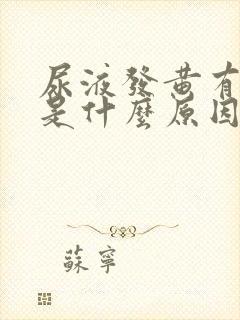 尿液發黃有
是什麼原因
蘇寧